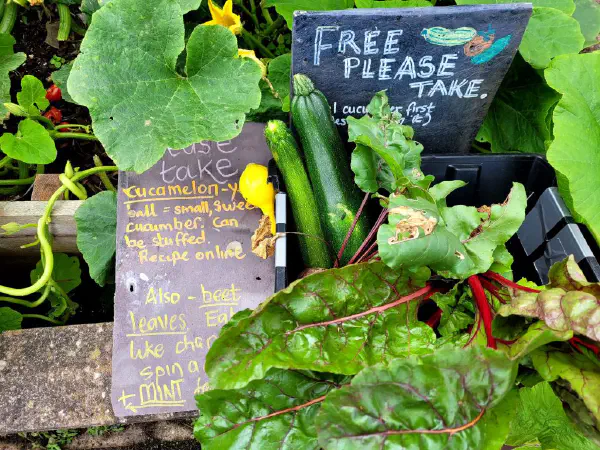 FREE
PLEASE
TAKE.
cucumber first
take
cucamelon-y
ball = small, sweet
cucumber. Can
be stuffed.
Recipe online
Also - beet
leaves. Eat
like
+ MINT